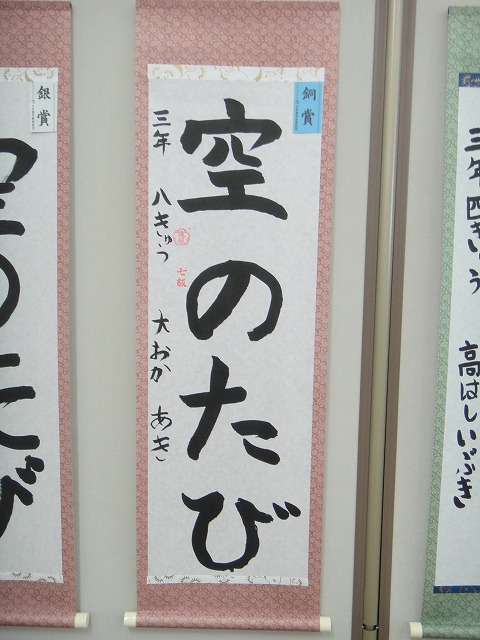 三年四きゅう
高はしいぶき
銅賞
空のたび
三年 八きゅう 大おか あき
七級
銀賞
空のたび